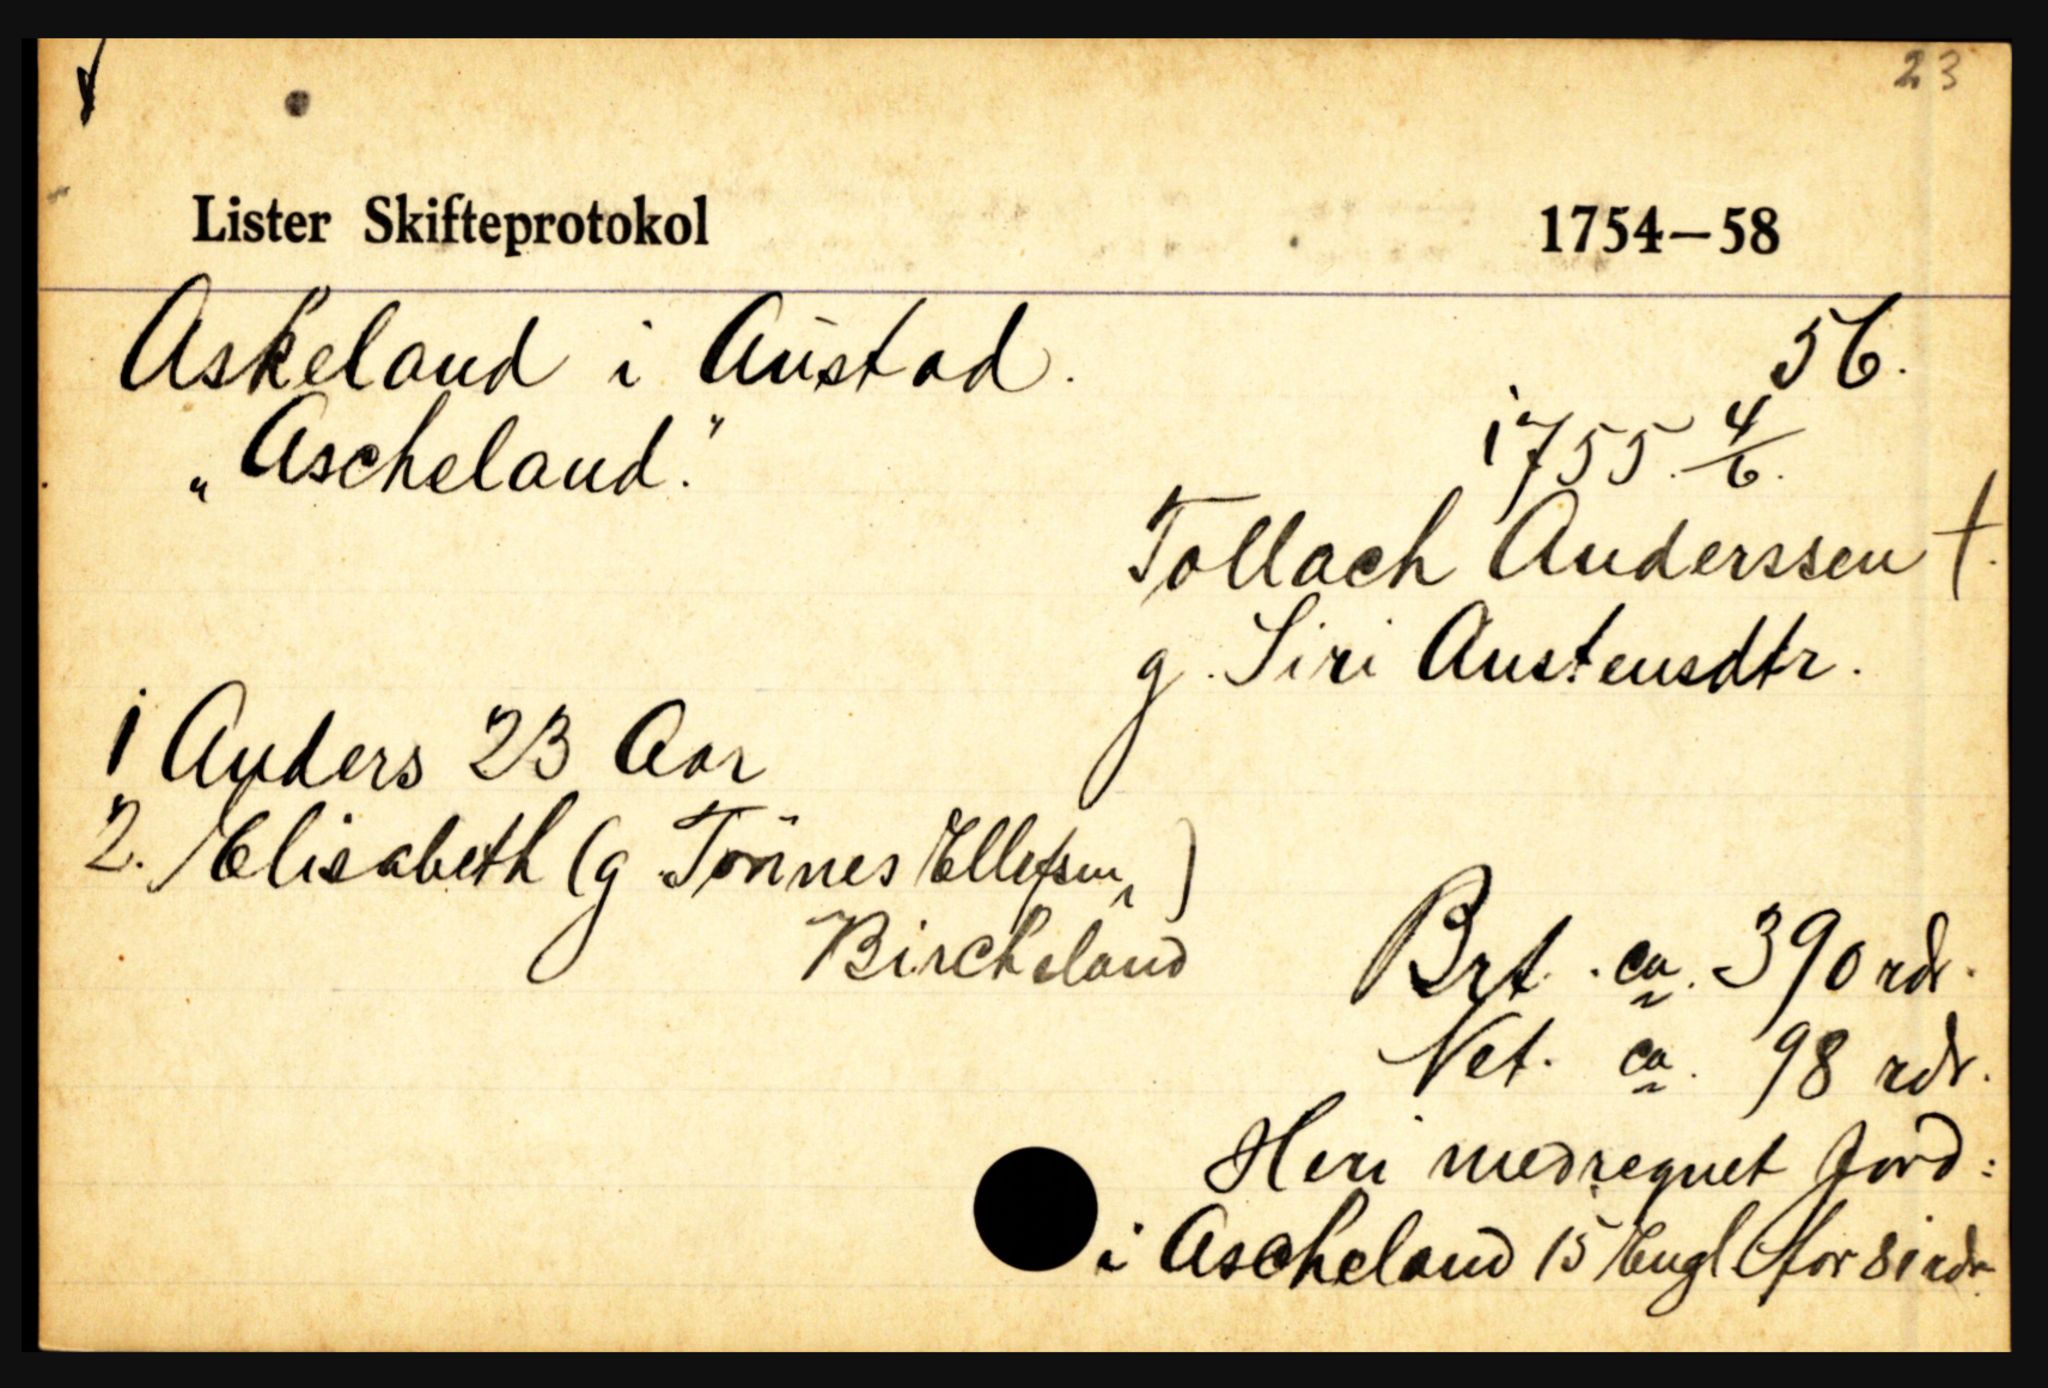 23
Lister Skifteprotokol 1754–58
Askeland i Austad. 56.
„Ascheland." 1755 4/6.
Tollach Anderssen †.
g. Siri Austensdtr.
1 Anders 23 Aar
2. Elisabeth (g. Tönnes Ellefsen,)
Bircheland
Brt. ca. 390 rdr.
Net. ca. 98 rdr.
Heri medregnet Jord:
i Ascheland 15 Engl for 81 rdr.